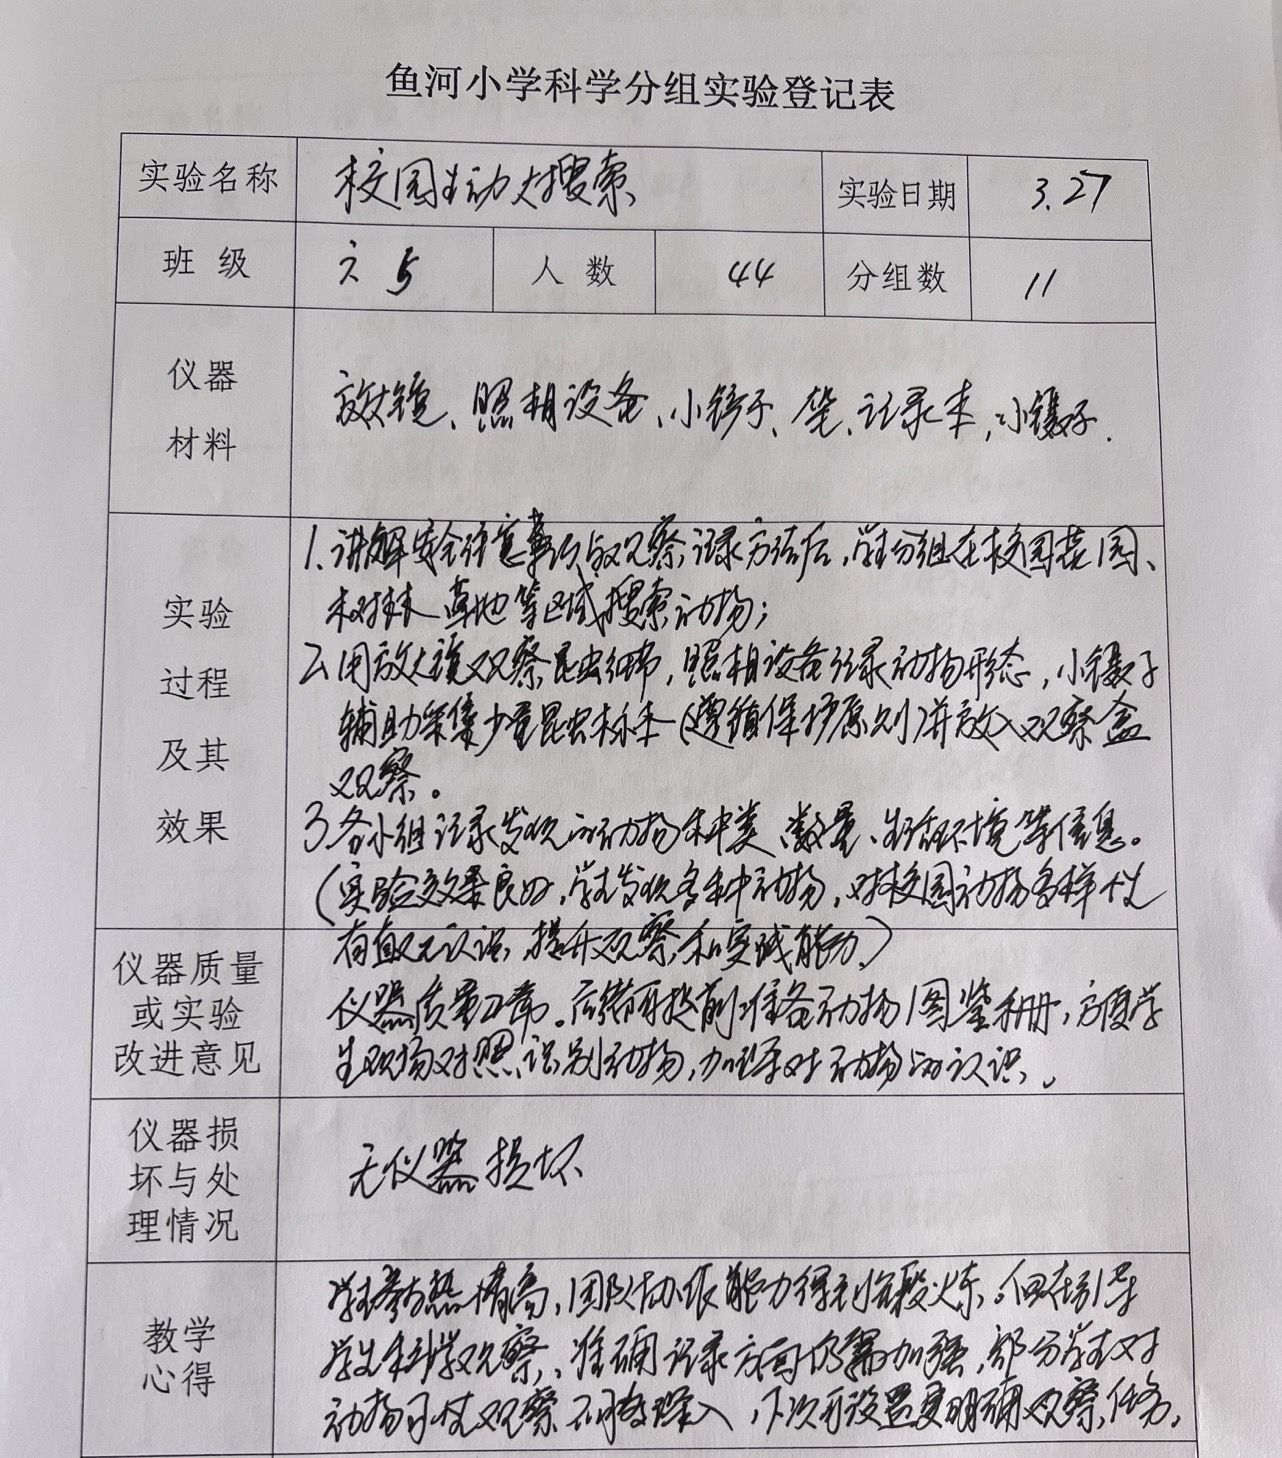 鱼河小学科学分组实验登记表
实验名称 校园生动大搜索 实验日期 3.27
班级 六5 人数 44 分组数 11
仪器
材料
放大镜、照相设备、小铲子、笔、记录本,小镊子.
实验
过程
及其
效果
1.讲解安全注意事项与观察记录方法后,学生分组在校园花园、
树林草地等区域搜索动物;
2.用放大镜观察昆虫细节,照相设备记录动物形态,小镊子
辅助采集少量昆虫标本(遵循保护原则)并放入观察盒
观察。
3各小组记录发现的动物种类、数量、生活环境等信息。
(实验效果良好,学生发现多种动物,对校园动物多样性
有直观认识,提升观察和实践能力)
仪器质量
或实验
改进意见
仪器质量正常。后续可提前准备动物图鉴手册,方便学
生现场对照识别动物,加深对动物的认识。
仪器损
坏与处
理情况
无仪器损坏
教学
心得
学生参与热情高,团队协作能力得到锻炼。但在引导
学生科学观察、准确记录方面仍需加强,部分学生对
动物习性观察不够深入,下次可设置更明确观察任务。